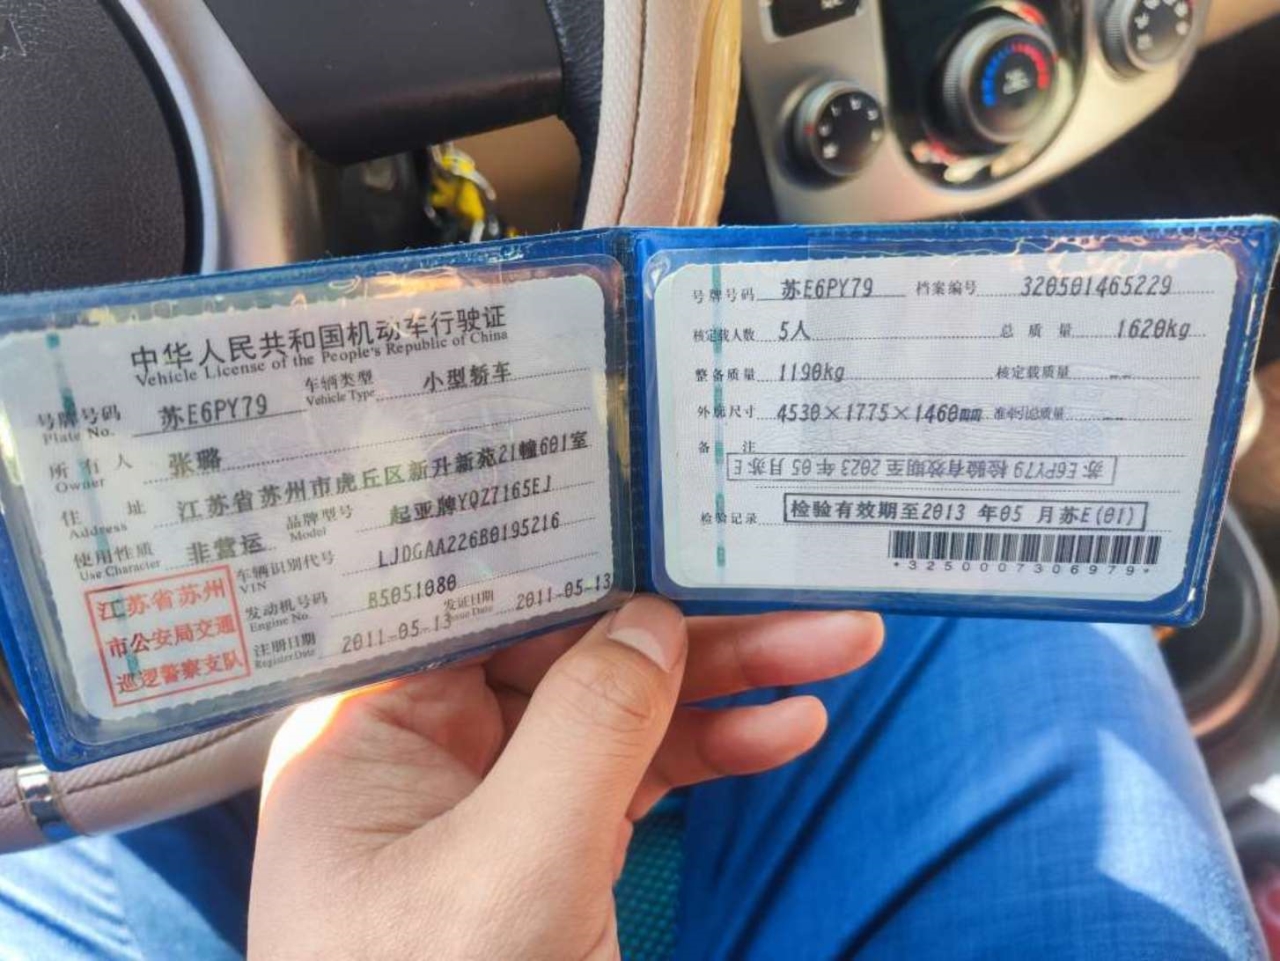 中华人民共和国机动车行驶证
Vehicle License of the People's Republic of China
号牌号码 苏E6PY79 车辆类型 小型轿车
Plate No. Vehicle Type
所有人 张璐
Owner
住址 江苏省苏州市虎丘区新升新苑21幢601室
Address
使用性质 非营运 品牌型号 起亚牌YQZ7165EJ
Use Character Model
江苏省苏州
市公安局交通
巡逻警察支队
车辆识别代号 LJDGAA226B0195216
VIN
发动机号码 B5051080
Engine No.
注册日期 2011-05-13 发证日期 2011-05-13
Register Date Issue Date
号牌号码 苏E6PY79 档案编号 320501465229
核定载人数 5人 总质量 1620kg
整备质量 1190kg 核定载质量 --
外廓尺寸 4530×1775×1460mm 准牵引总质量 --
备注
苏E6PY79 检验有效期至2023年05月苏E
检验记录 检验有效期至2013 年05 月苏E(01)
*3250007306979*